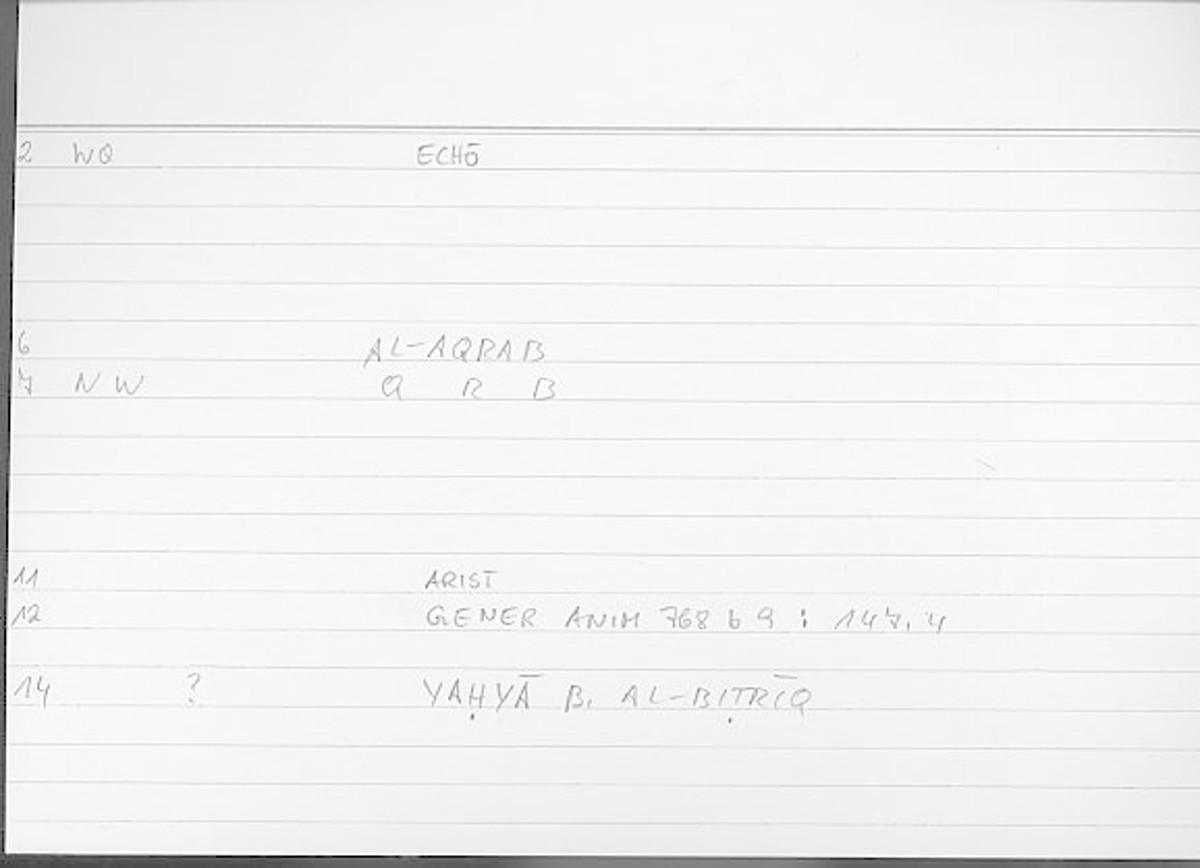 2 WQ ECHŌ
6 AL-AQRAB
7 NW Q R B
11 ARIST
12 GENER ANIM 768 b 9 : 147.4
14 ? YAḤYĀ B. AL-BIṬRĪQ